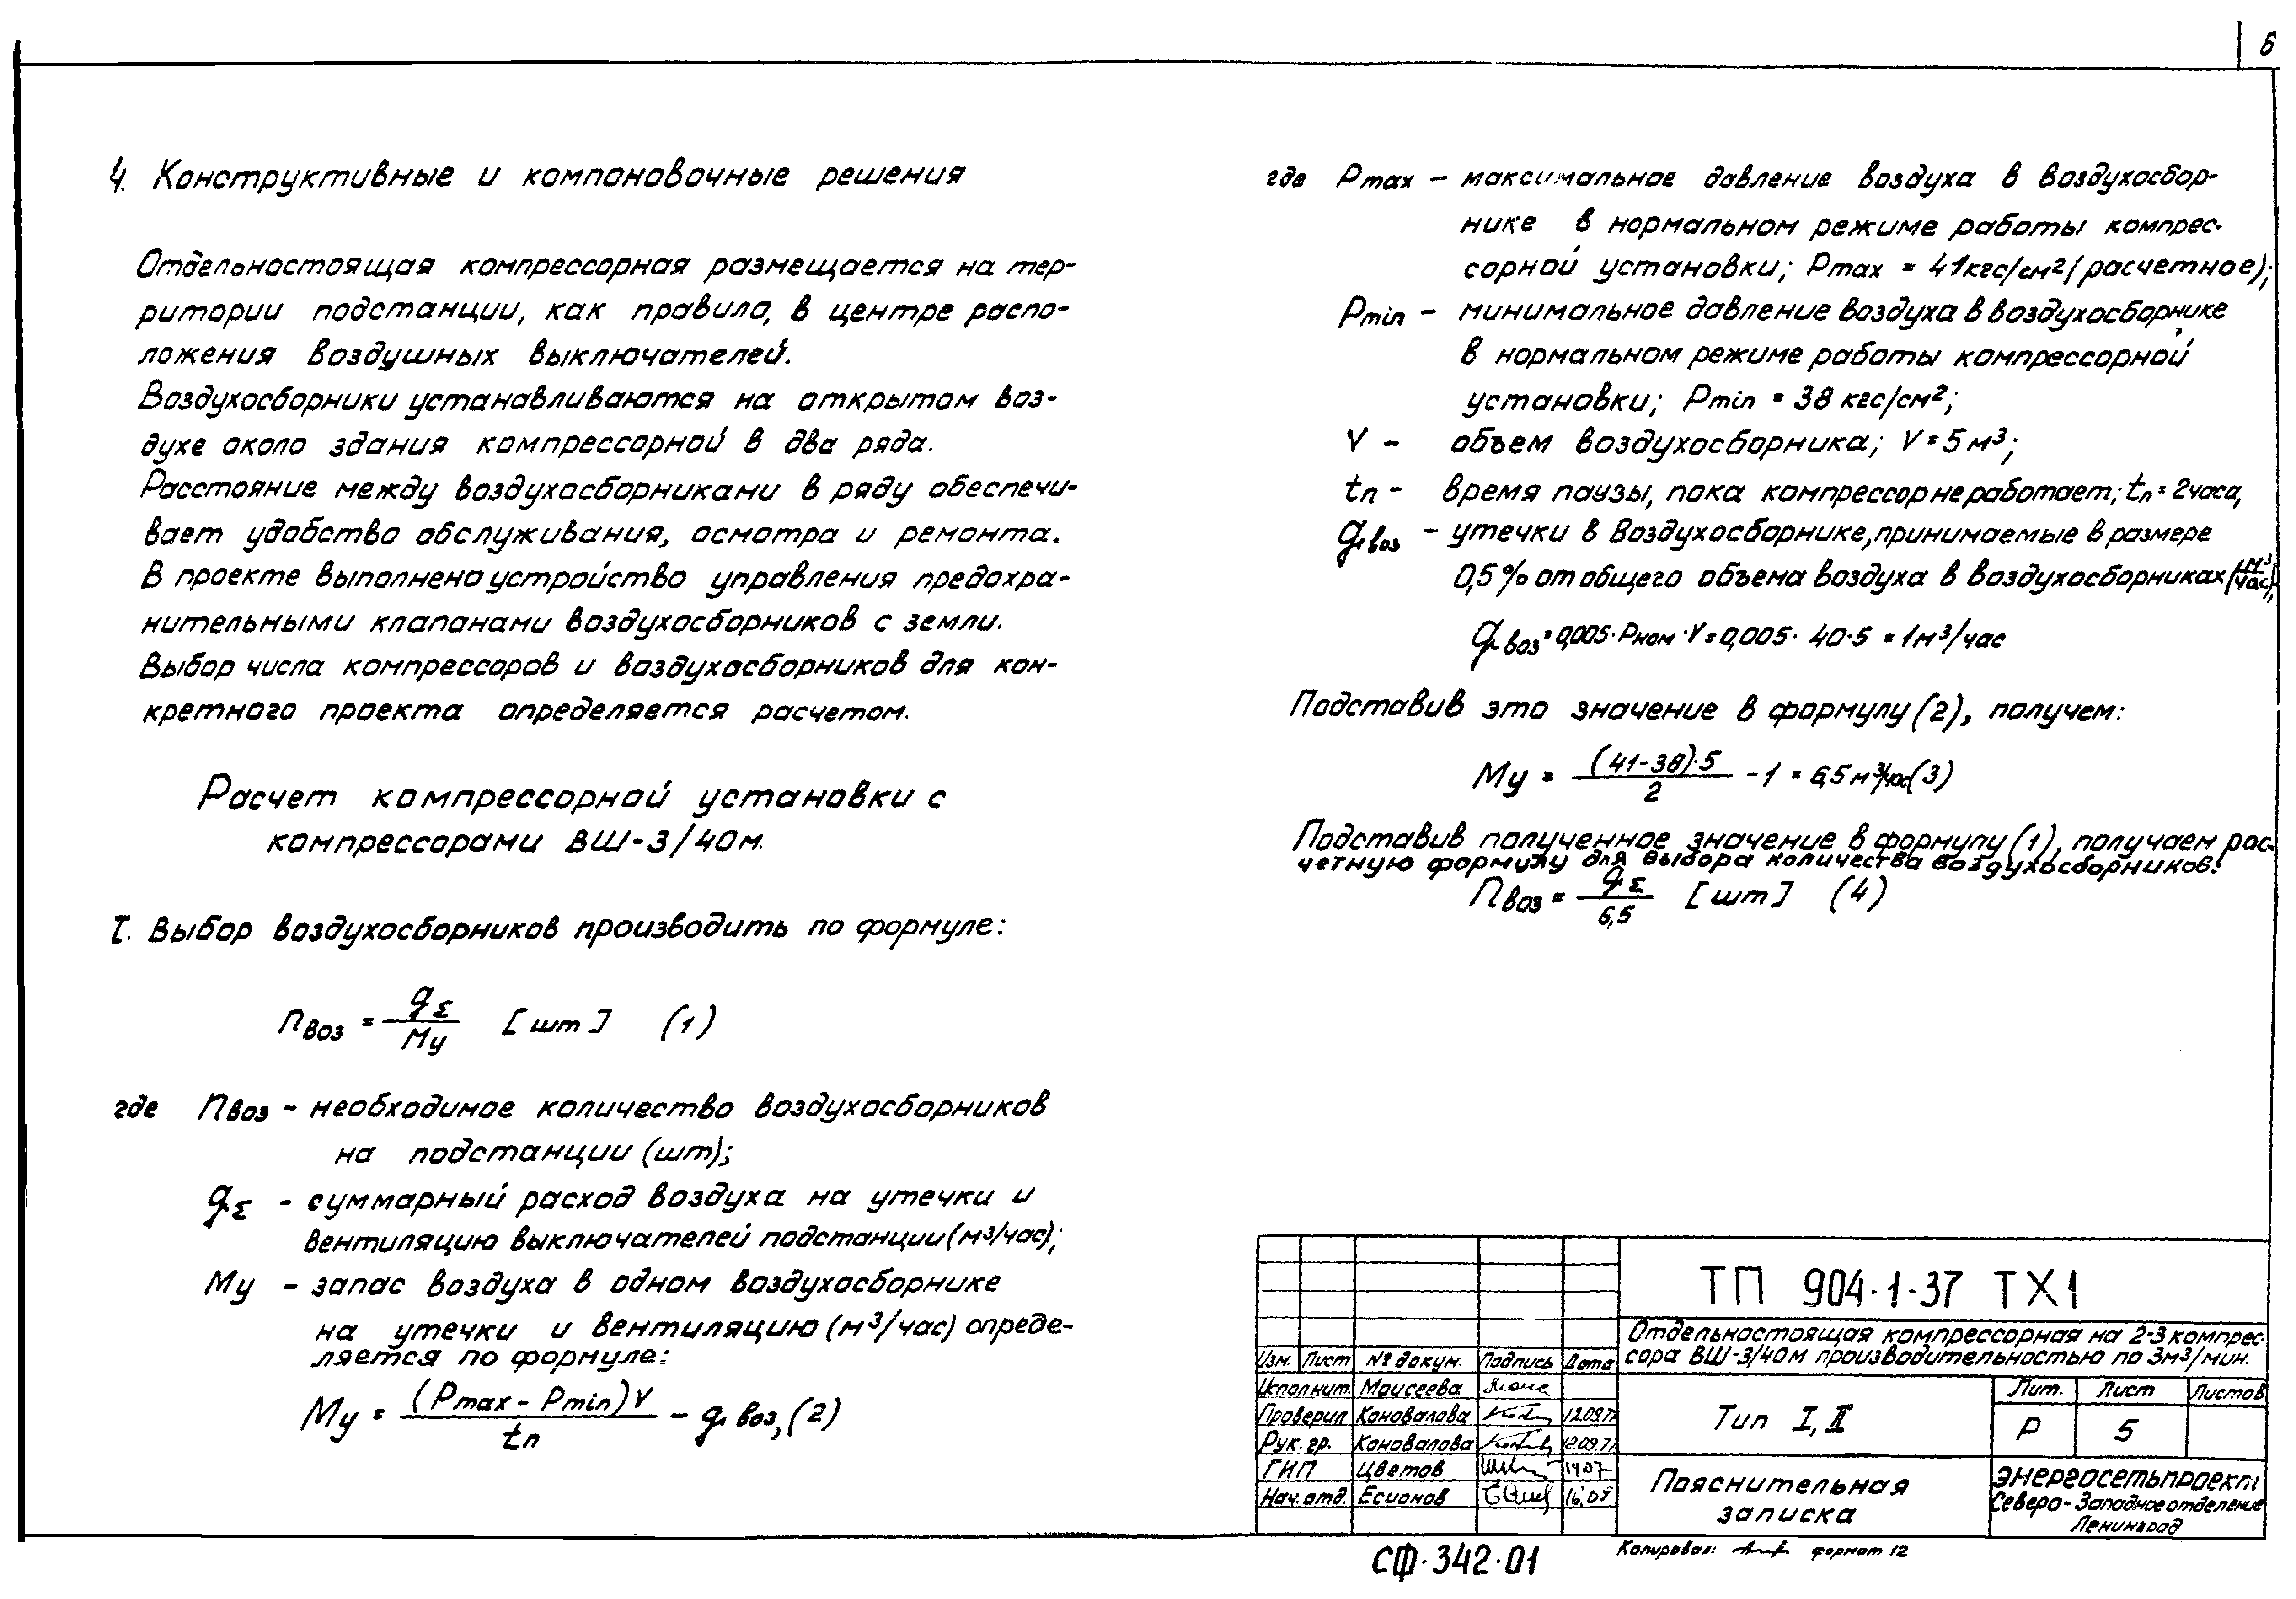 6
4. Конструктивные и компоновочные решения
Отдельностоящая компрессорная размещается на тер-
ритории подстанции, как правило, в центре распо-
ложения воздушных выключателей.
Воздухосборники устанавливаются на открытом воз-
духе около здания компрессорной в два ряда.
Расстояние между воздухосборниками в ряду обеспечи-
вает удобство обслуживания, осмотра и ремонта.
В проекте выполнено устройство управления предохра-
нительными клапанами воздухосборников с земли.
Выбор числа компрессоров и воздухосборников для кон-
кретного проекта определяется расчетом.
Расчет компрессорной установки с
компрессорами ВШ-3/40м.
I. Выбор воздухосборников производить по формуле:
nвоз = qΣ / Mу [шт] (1)
где nвоз – необходимое количество воздухосборников
на подстанции (шт);
qΣ – суммарный расход воздуха на утечки и
вентиляцию выключателей подстанции (м³/час);
Mу – запас воздуха в одном воздухосборнике
на утечки и вентиляцию (м³/час) опреде-
ляется по формуле:
Mу = (Pmax - Pmin)V / tп - qвоз, (2)
где Pmax – максимальное давление воздуха в воздухосбор-
нике в нормальном режиме работы компрес-
сорной установки; Pmax = 41кгс/см² (расчетное);
Pmin – минимальное давление воздуха в воздухосборнике
в нормальном режиме работы компрессорной
установки; Pmin = 38 кгс/см²;
V – объем воздухосборника; V = 5 м³;
tп – время паузы, пока компрессор не работает; tп = 2 часа,
qвоз – утечки в воздухосборнике, принимаемые в размере
0,5% от общего объема воздуха в воздухосборниках (м³/час);
qвоз = 0,005·Pном·V = 0,005·40·5 = 1м³/час
Подставив это значение в формулу (2), получем:
Mу = (41-38)·5 / 2 - 1 = 6,5 м³/час (3)
Подставив полученное значение в формулу (1), получаем рас-
четную формулу для выбора количества воздухосборников:
nвоз = qΣ / 6,5 [шт] (4)
ТП 904-1-37 ТХ1
Отдельностоящая компрессорная на 2-3 компрес-
сора ВШ-3/40м производительностью по 3м³/мин.
Изм. Лист № докум. Подпись Дата
Исполнит. Моисеева
Проверил Коновалова 12.09.77
Рук. гр. Коновалова 12.09.77
ГИП Цветов 14.09
Нач. отд. Есионов 16.09
Тип I, II
Лит. Лист Листов
Р 5
Пояснительная
записка
ЭНЕРГОСЕТЬПРОЕКТ
Северо-Западное отделение
Ленинград
СФ·342·01
Копировал: формат 12